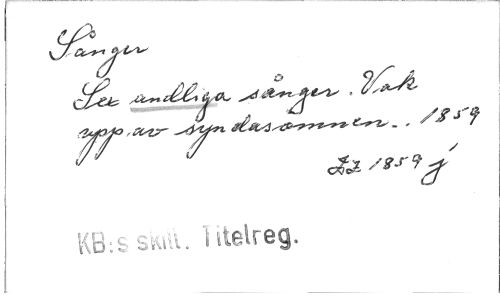 Sånger
Sex andliga sånger. Vak
upp av syndasömnen.. 1859
1859 j
KB:s skill. Titelreg.